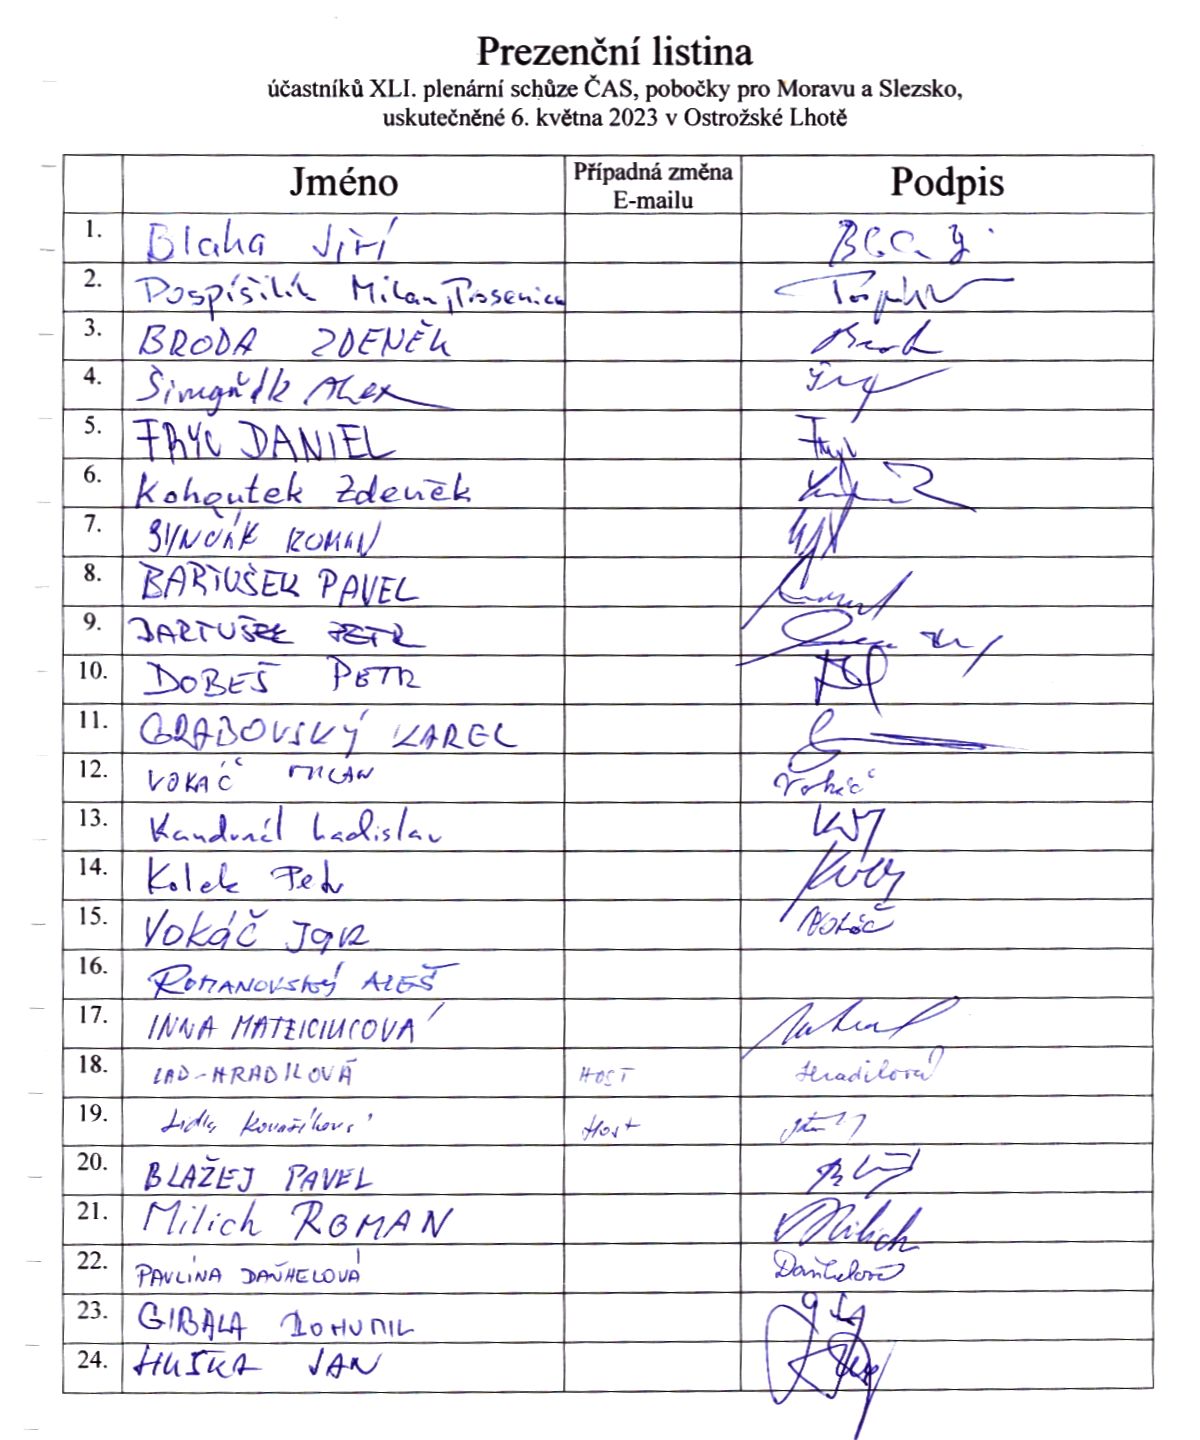 Prezenční listina
účastníků XLI. plenární schůze ČAS, pobočky pro Moravu a Slezsko,
uskutečněné 6. května 2023 v Ostrožské Lhotě
Jméno Případná změna E-mailu Podpis
1. Blaha Jiří
2. Pospíšilík Milan, Prosenice
3. BRODA ZDENĚK
4. Alex
5. FRYC DANIEL
6. Kohoutek Zdeněk
7. ROMAN
8. BARTUŠEK PAVEL
9. BARTUŠEK PETR
10. DOBEŠ PETR
11. GRABOVSKÝ KAREL
12. VOKÁČ MILAN Vokáč
13. Ladislav
14. Kolek Petr
15. VOKÁČ Vokáč
16. ROMANOVSKÝ ALEŠ
17. INNA MATEICIUCOVÁ
18. LAD-HRADILOVÁ HOST Hradilová
19. Host
20. BLAŽEJ PAVEL
21. Milich ROMAN Milich
22. PAVLÍNA DAŇHELOVÁ Daňhelová
23. GIBALA BOHUMIL
24. HUŠKA JAN